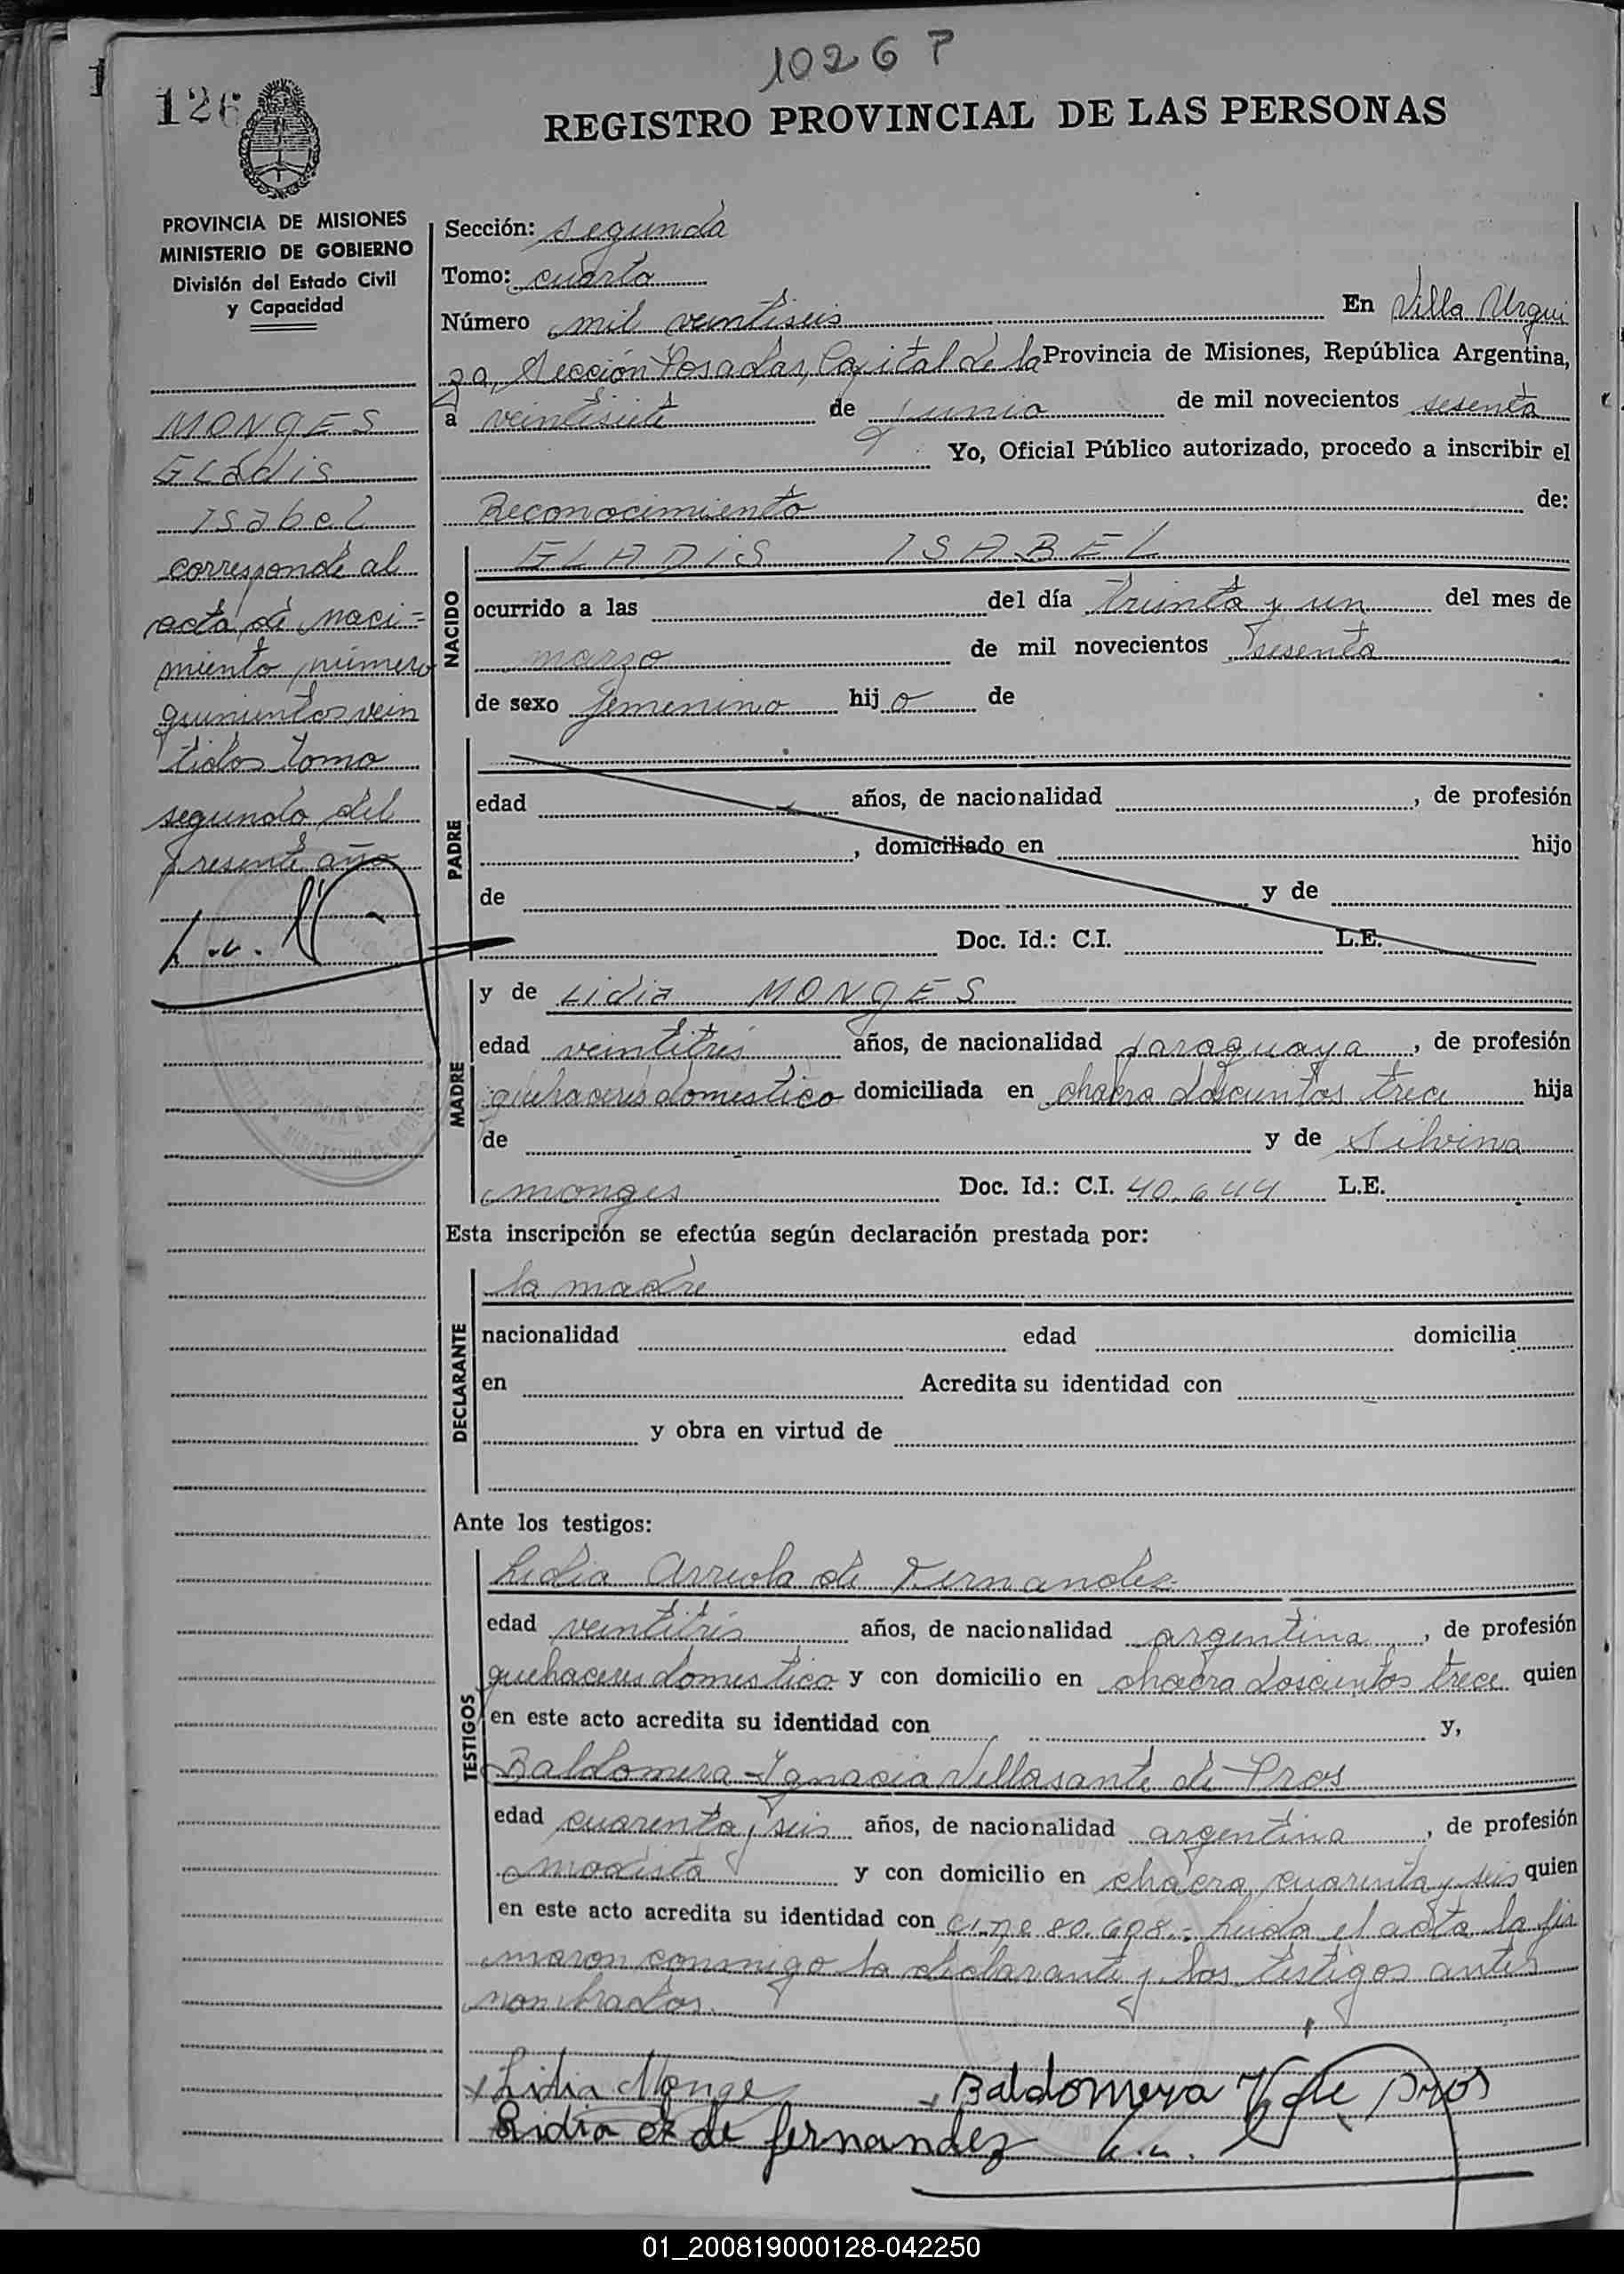 1026 P
126
REGISTRO PROVINCIAL DE LAS PERSONAS
PROVINCIA DE MISIONES
MINISTERIO DE GOBIERNO
División del Estado Civil
y Capacidad
MONGES
GLadis
Isabel
corresponde al
acta de naci=
miento número
quinientos vein
tidos tomo
segundo del
presente año
Sección: segunda
Tomo: cuarto
Número mil veintiseis En Villa Urqui
za, Sección Posadas, Capital de la Provincia de Misiones, República Argentina,
a veintisiete de junio de mil novecientos sesenta
Yo, Oficial Público autorizado, procedo a inscribir el
Reconocimiento de:
NACIDO
GLADIS ISABEL
ocurrido a las del día treinta y un del mes de
marzo de mil novecientos sesenta
de sexo femenino hijo de
PADRE
edad años, de nacionalidad , de profesión
, domiciliado en hijo
de y de
Doc. Id.: C.I. L.E.
MADRE
y de Lidia MONGES
edad veintitrés años, de nacionalidad paraguaya, de profesión
quehaceres domestico domiciliada en chacra doscientos trece hija
de y de Silvina
monges Doc. Id.: C.I. 40.644 L.E.
Esta inscripción se efectúa según declaración prestada por:
DECLARANTE
la madre
nacionalidad edad domicilia
en Acredita su identidad con
y obra en virtud de
Ante los testigos:
TESTIGOS
Lidia Arreola de Fernandez
edad veintitrés años, de nacionalidad argentina, de profesión
quehaceres domestico y con domicilio en chacra doscientos trece quien
en este acto acredita su identidad con y,
Baldomera Ygnacia Villasante de Pros
edad cuarenta y seis años, de nacionalidad argentina, de profesión
modista y con domicilio en chacra cuarenta y seis quien
en este acto acredita su identidad con 80.698.- Leida el acta la fir
maron conmigo la declarante y los testigos antes
nombrados.
Lidia Monges Baldomera V de Pros
Lidia de fernandez
01_200819000128-042250